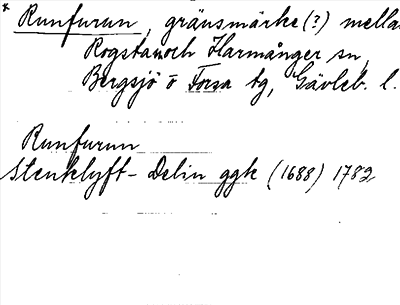 * Runfurun, gränsmärke (?) mella
Rogsta och Harmånger sn,
Bergsjö o Forsa tg, Gävleb. l.
Runfurun
Stenklyft- Delin ggk (1688) 1782